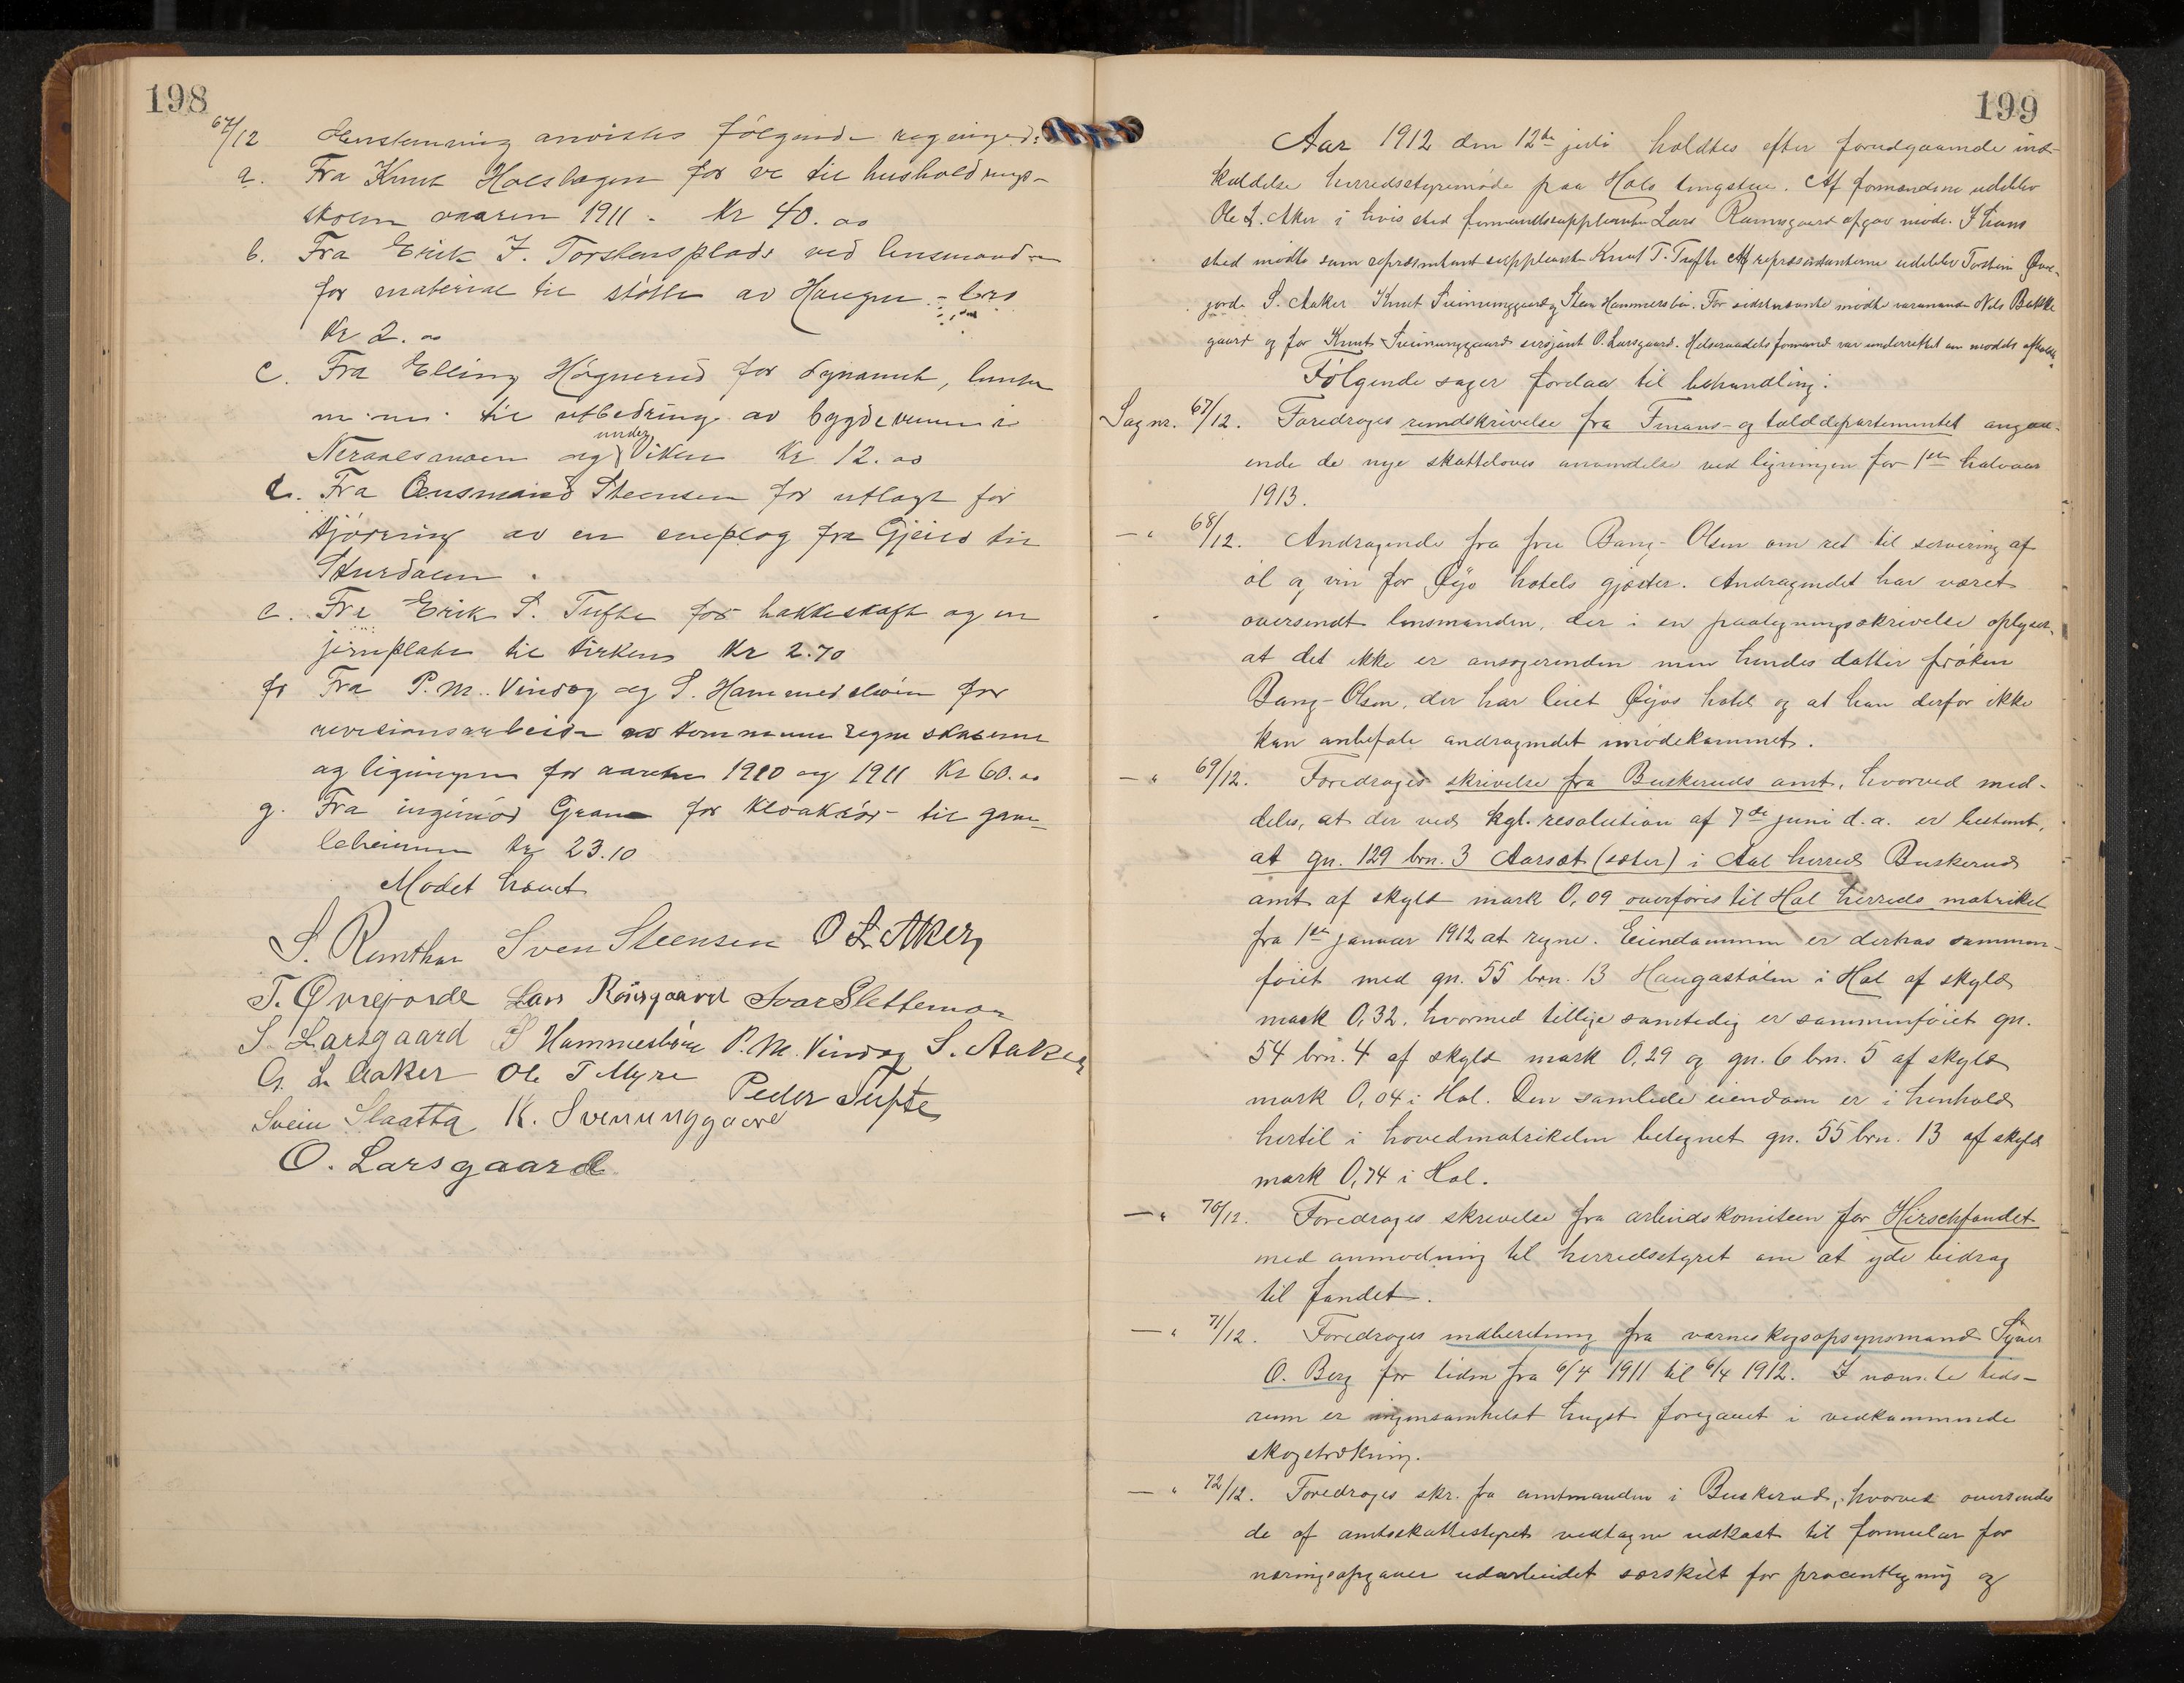 198
67/12 Overstemning anvistes følgende regninger:
a. Fra Knut Holshagen for ve til husholdnings-
skolen vaaren 1911 - Kr 40.00
b. Fra Erik J. Torstensplads ved lensmanden
for material til støtte av Haugen - bro
Kr 2.00
c. Fra Elling Høgnerud for dynamit, lunter
m. m. til utbedring av bygdeveien i
Neraalsaasen og under Viken Kr 12.00
d. Fra Lensmand Steensen for utlagt for
kjøring av en sneplog fra Gjeilo til
Skurdalen.
e. Fra Erik S. Tufte for hakkeskaft og en
jernplate til kirken Kr 2.70
f. Fra P. M. Vindeg og S. Hammersbøen for
revisionsarbeide av kommuneregnskaberne
og ligningen for aarene 1910 og 1911 Kr 60.00
g. Fra ingeniør Gran for kloakrør til gam-
leheimen Kr 23.10
Mødet hævet
S. Remthun Sven Steensen O L Aker
T. Øvrejorde Lars Rønsgaard Ivar Slettemoen
S. Larsgaard S Hammersbøen P. M. Vindeg S. Aaker
G. L Aaker Ole T Myre Peder Tufte
Svein Slaatta K. Svenunggaard
O. Larsgaard
199
Aar 1912 den 12te juli holdtes efter forudgaaende ind-
kaldelse herredsstyremøde paa Hols tingstue. Af formændene udeblev
Ole L. Aker i hvis sted formandssuppleanten Lars Rønsgaard afgav møde. I hans
sted mødte som repræsentantsuppleant Knut T. Tufte. Af repræsentanterne udeblev Torstein Øvre-
jorde S. Aaker Knut Svenunggaard og Sten Hammersbøen. For sidstnævnte mødte varamand Nils Bakke
gaard og for Knut Svenunggaard sersjant O. Larsgaard. Helseraadets formand var underrettet om mødets afholdelse.
Følgende sager fordaa til behandling:
Sag nr. 67/12. Foredroges rundskrivelse fra Finans- og tolddepartementet angaa-
ende de nye skatteloves anvendelse ved ligningen for 1ste halvaar
1913.
— " 68/12. Andragende fra fru Bang-Olsen om ret til servering af
øl og vin for Øijo hotels gjæster. Andragendet har været
oversendt lensmanden, der i en paategningsskrivelse oplyser,
at det ikke er ansøgerinden men hendes datter frøken
Bang-Olsen, der har leiet Øijos hotel og at han derfor ikke
kan anbefale andragendet imødekommet.
— " 69/12. Foredroges skrivelse fra Buskeruds amt, hvorved med-
deles, at der ved kgl. resolution af 7de juni d.a. er bestemt,
at gn. 129 brn. 3 Aarsæt (sæter) i Aal herred Buskeruds
amt af skyld mark 0,09 overføres til Hol herreds matrikel
fra 1ste januar 1912 at regne. Eiendommen er derhos sammen-
føiet med gn. 55 brn. 13 Haugastølen i Hol af skyld
mark 0,32. hvormed tillige samtidig er sammenføiet gn.
54 brn. 4 af skyld mark 0,29 og gn. 6 brn. 5 af skyld
mark 0,04 i Hol. Den samlede eiendom er i henhold
hertil i hovedmatrikelen betegnet gn. 55 brn. 13 af skyld
mark 0,74 i Hol.
— " 70/12. Foredroges skrivelse fra arbeidskomiteen for Hirschfondet
med anmodning til herredsstyret om at yde bidrag
til fondet.
— " 71/12. Foredroges indberetning fra værneskogsopsynsmand Syver
O. Berg for tiden fra 6/4 1911 til 6/4 1912. I nævnte tids-
rum er ingensomhelst hugst foregaaet i vedkommende
skogstrækning.
— " 72/12. Foredroges skr. fra amtmanden i Buskerud, hvorved oversendes
de af amtsskattestyret vedtagne udkast til formular for
næringsopgaver udarbeidet særskilt for procentligning og